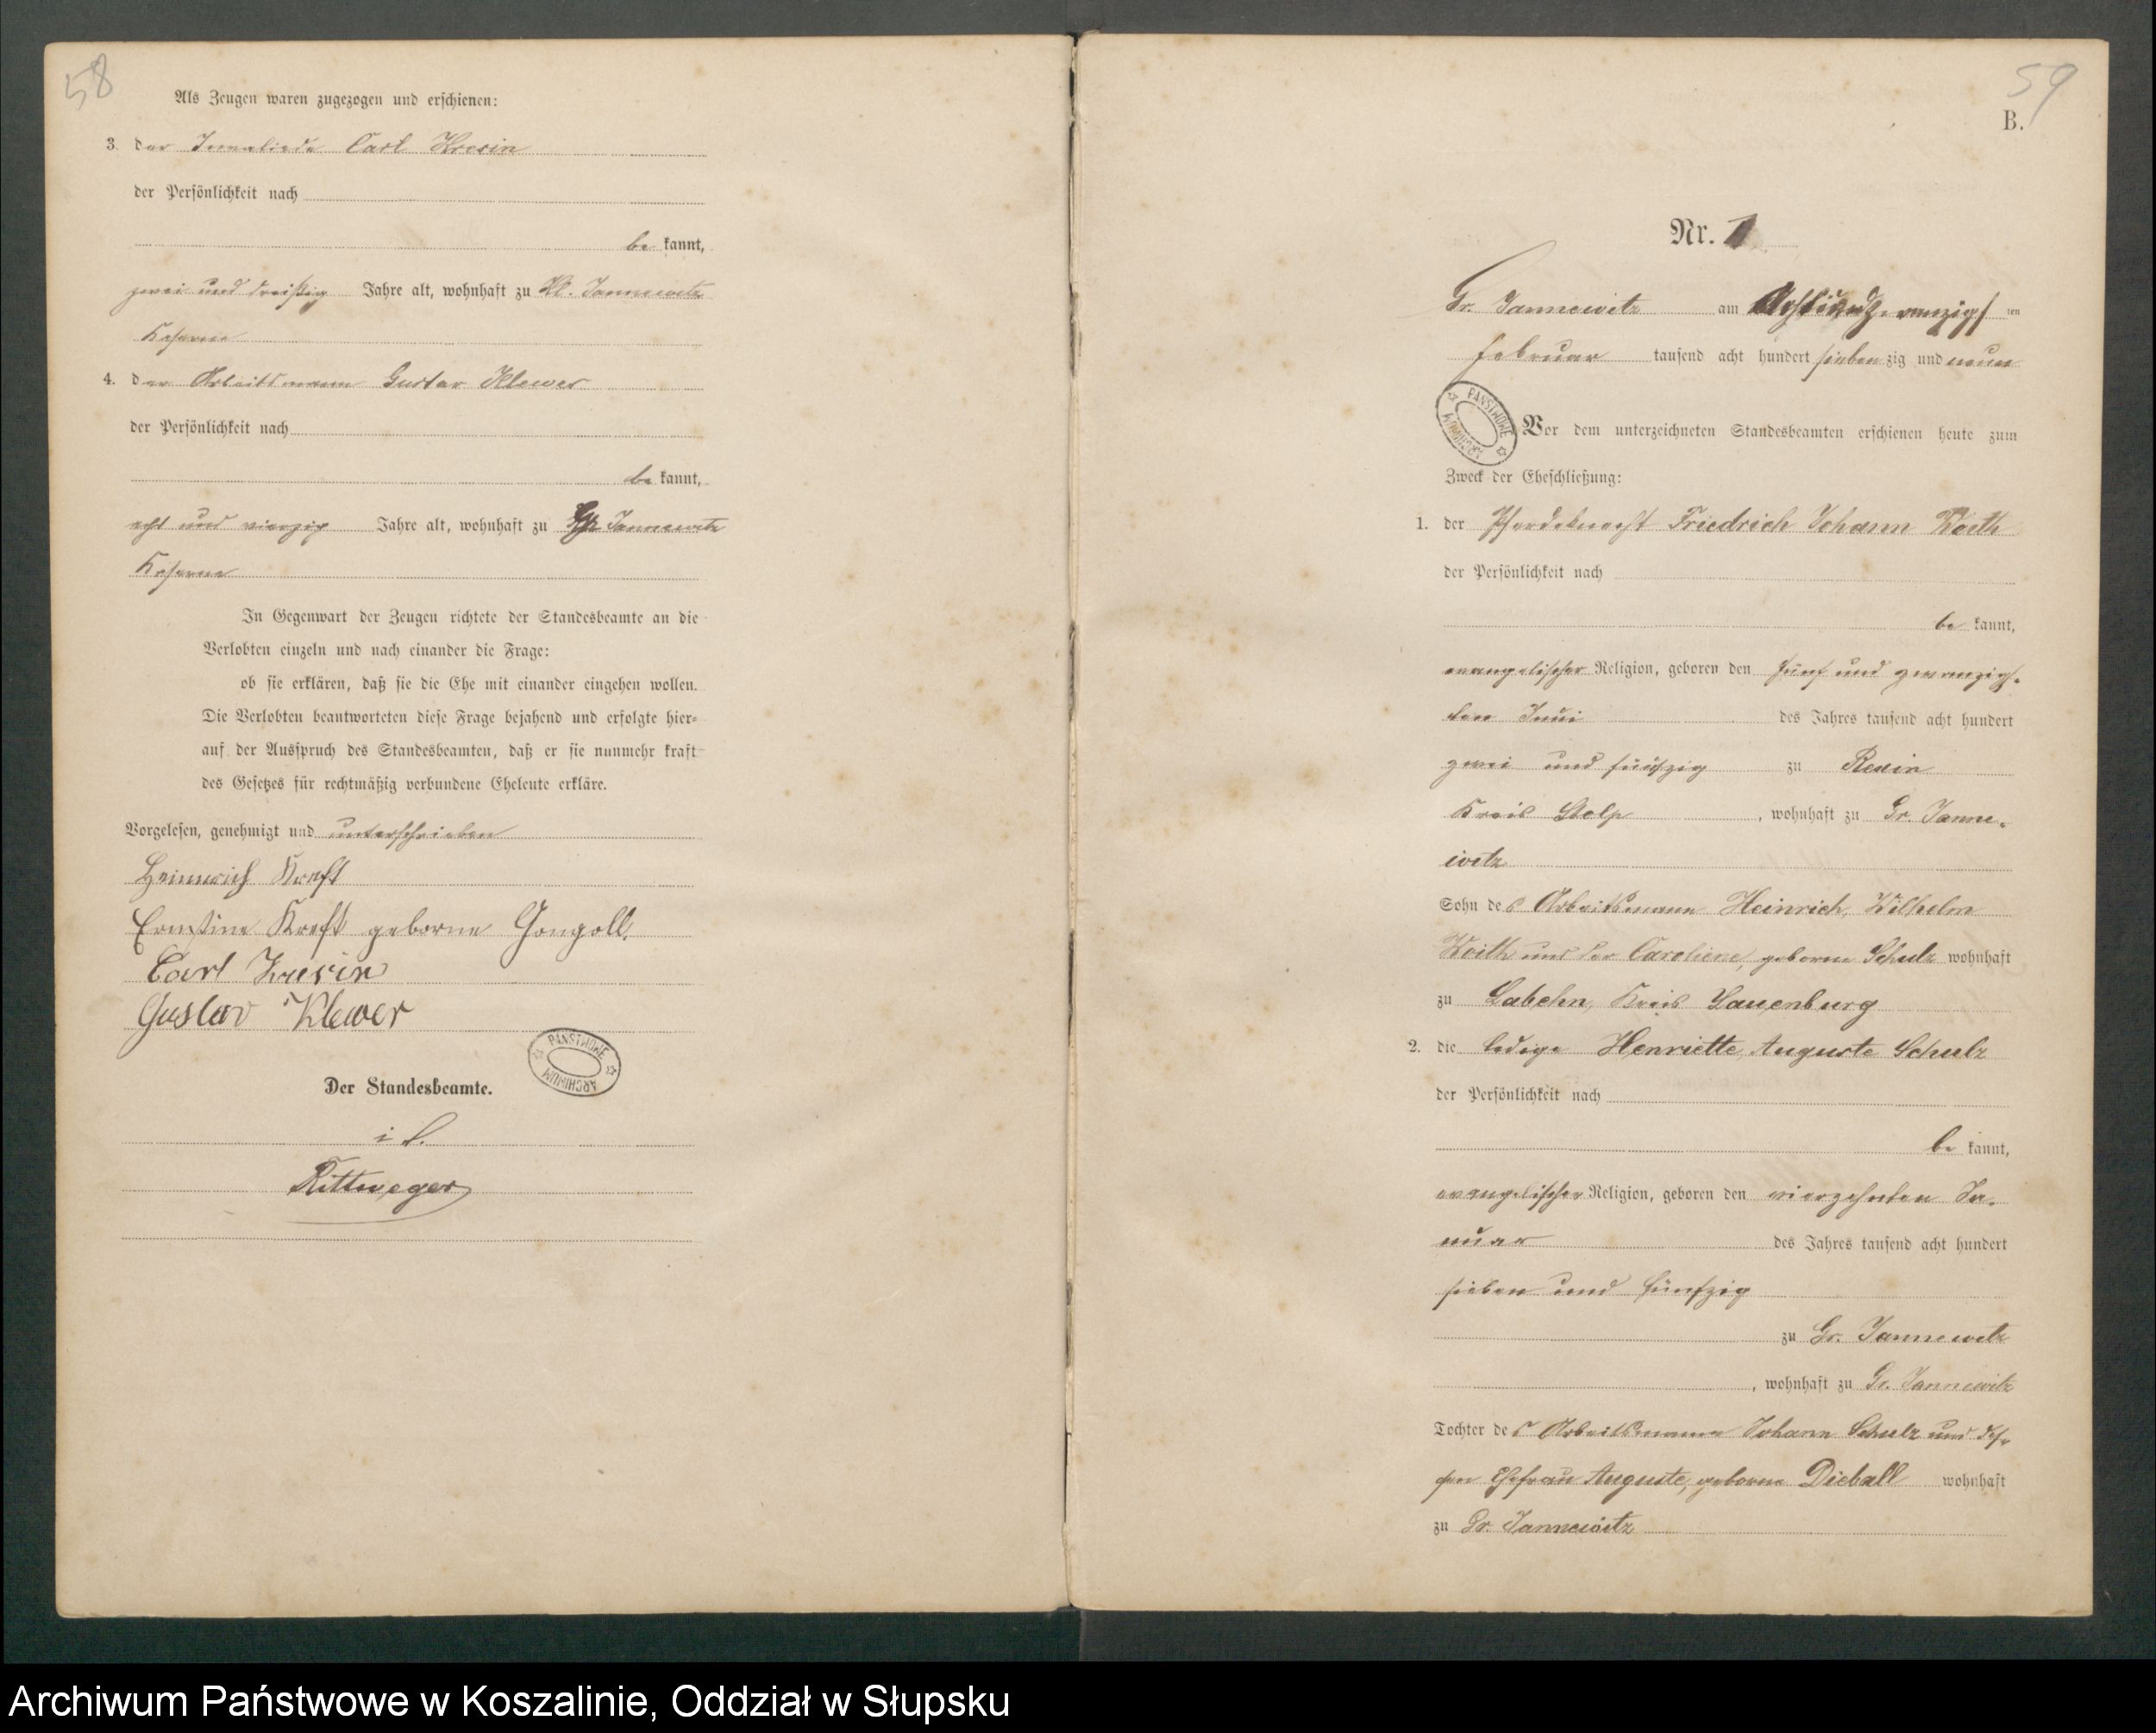 58
Als Zeugen waren zugezogen und erschienen:
3. der Invalide Carl
der Persönlichkeit nach
be kannt,
zwei und dreißig Jahre alt, wohnhaft zu Kl. Jannewitz
4. der Arbeitsmann Gustav Klewer
der Persönlichkeit nach
be kannt,
acht und vierzig Jahre alt, wohnhaft zu Gr. Jannewitz
In Gegenwart der Zeugen richtete der Standesbeamte an die
Verlobten einzeln und nach einander die Frage:
ob sie erklären, daß sie die Ehe mit einander eingehen wollen.
Die Verlobten beantworteten diese Frage bejahend und erfolgte hier=
auf der Ausspruch des Standesbeamten, daß er sie nunmehr kraft
des Gesetzes für rechtmäßig verbundene Eheleute erkläre.
Vorgelesen, genehmigt und unterschrieben
Heinrich Kreft
Ernstine Kreft geborne Gongoll.
Carl
Gustav Klewer
PAŃSTWOWE ARCHIWUM
Der Standesbeamte.
Rittweger
59
B.
Nr. 1
Gr. Jannewitz am Achtundzwanzigs ten
Februar tausend acht hundert sieben zig und neun
PAŃSTWOWE ARCHIWUM
Vor dem unterzeichneten Standesbeamten erschienen heute zum
Zweck der Eheschließung:
1. der Pferdeknecht Friedrich Johann
der Persönlichkeit nach
be kannt,
evangelischer Religion, geboren den fünf und zwanzigs-
ten des Jahres tausend acht hundert
zwei und fünfzig zu Rexin
Kreis Stolp, wohnhaft zu Gr. Janne-
witz
Sohn des Arbeitsmann Heinrich, Wilhelm
und der Caroliene, geborne Schulz wohnhaft
zu Labehn, Kreis Lauenburg
2. die ledige Henriette, Auguste Schulz
der Persönlichkeit nach
be kannt,
evangelischer Religion, geboren den vierzehnten Ja-
nuar des Jahres tausend acht hundert
sieben und fünfzig
zu Gr. Jannewitz
, wohnhaft zu Gr. Jannewitz
Tochter des Arbeitsmann Johann Schulz und des-
sen Ehefrau Auguste, geborne Dieball wohnhaft
zu Gr. Jannewitz
Archiwum Państwowe w Koszalinie, Oddział w Słupsku